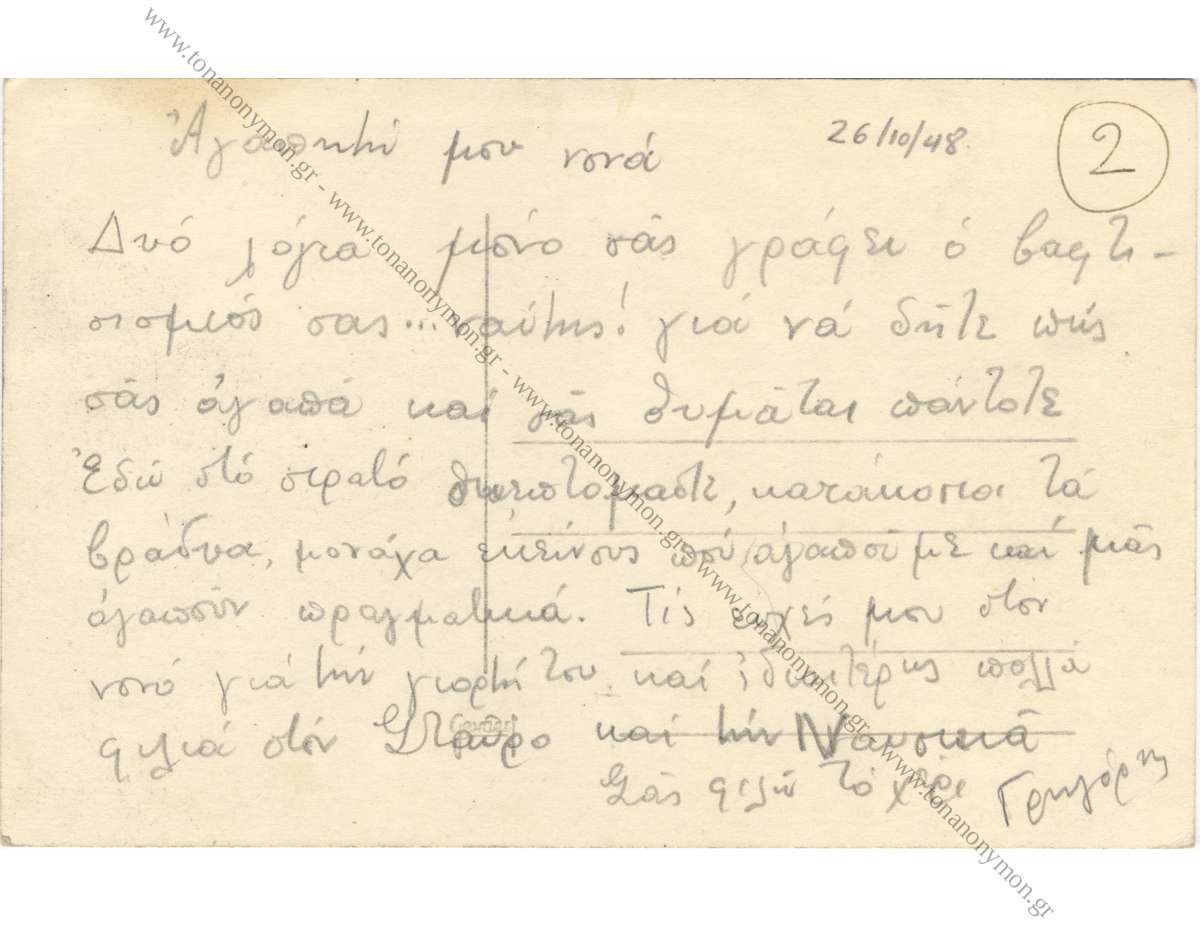 26/10/48
2
Ἀγαπητή μου νονά
Δυό λόγια μόνο σᾶς γράφει ὁ βαφτι-
σισμιός σας... ναύτης! γιά νά δῆτε πώς
σᾶς ἀγαπᾶ καί σᾶς θυμᾶται πάντοτε
Ἐδώ στό στρατό θυμόμαστε, κατάκοποι τά
βράδυα, μονάχα ἐκείνους πού ἀγαποῦμε καί μᾶς
ἀγαποῦν πραγματικά. Τίς εὐχές μου στόν
νονό γιά τήν γιορτή του καί ἰδιαιτέρως πολλά
φιλιά στόν Σταῦρο καί τήν Ναυσικᾶ
Σᾶς φιλῶ τό χέρι Γρηγόρης
Gevaert
www.tonanonymon.gr - www.tonanonymon.gr - www.tonanonymon.gr - www.tonanonymon.gr - www.tonanonymon.gr